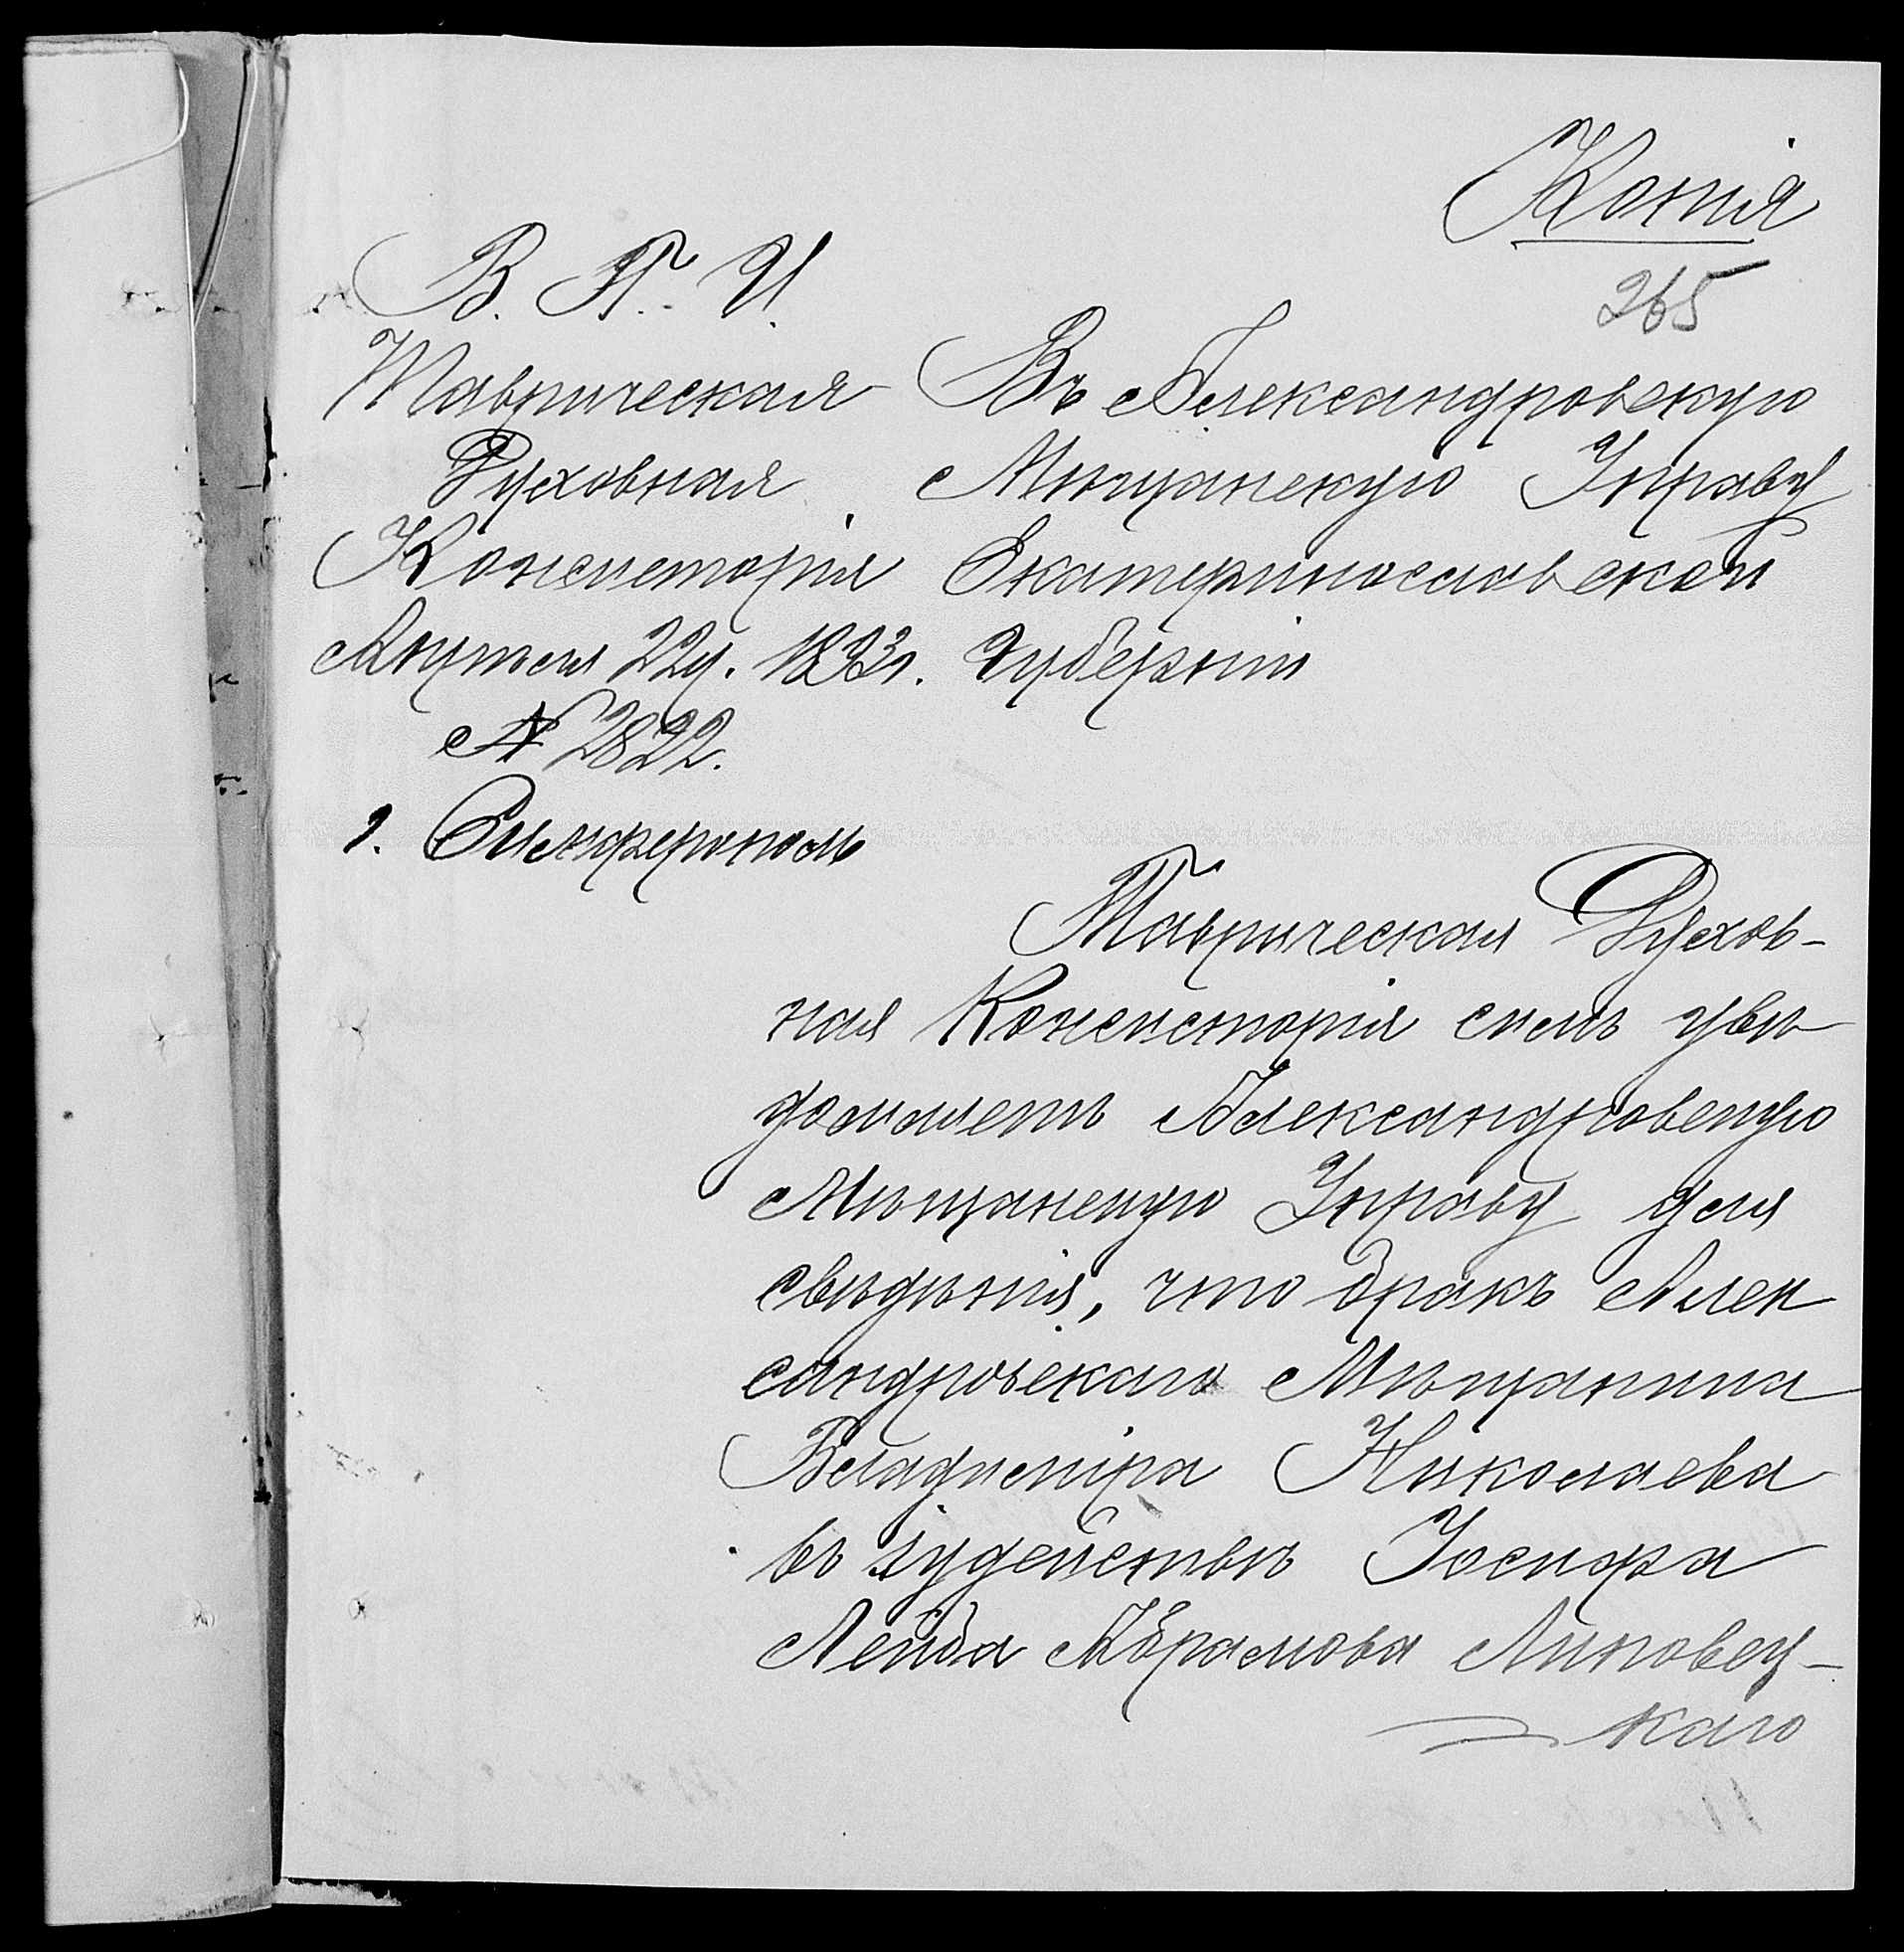 Копія
265
В. П. И.
Таврическая
Духовная
Консисторія
Апрѣля 22д. 1893г.
№ 2822.
г. Симферополь
Въ Александровскую
Мѣщанскую Управу
Екатеринославской
губерніи
Таврическая Духов-
ная Консисторія симъ увѣ
домляетъ Александровскую
Мѣщанскую Управу для
свѣдѣнія, что бракъ Алек
сандровскаго Мѣщанина
Владиміра Николаева
въ іудействѣ Іосифа
Лейба Абрамова Липовец-
каго